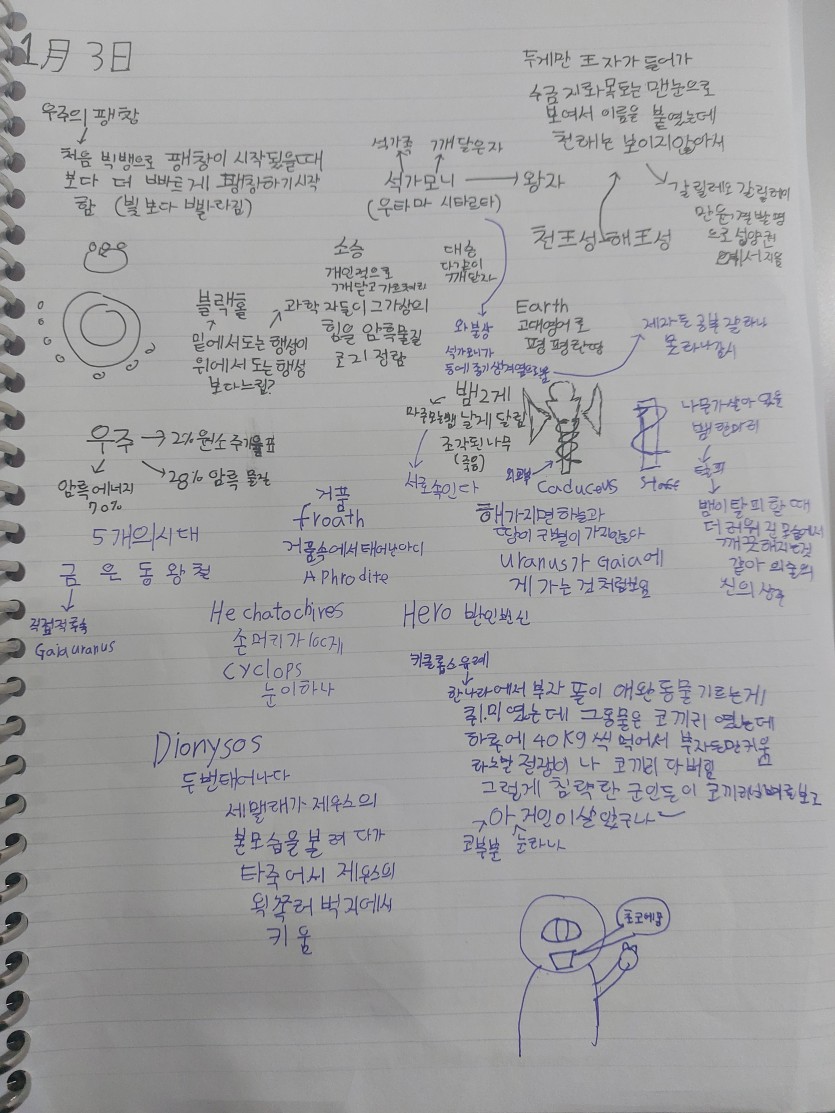 1月 3日
우주의 팽창
처음 빅뱅으로 팽창이 시작됬을때
보다 더 빠르게 팽창하기시작
함 (빛보다 빨라짐)
석가족
깨달은자
석가모니 → 왕자
(우타마 시타르타)
두게만 王자가 들어가
수금지화목토는 맨눈으로
보여서 이름을 붙였는데
천해는 보이지않아서
갈릴레오 갈릴레이
만원경발명
으로 서양권
에서 지음
천王성 해王성
소승
개인적으로
깨닫고
대승
다같이
깨닫자
블랙홀
밑에서도는 행성이
위에서 도는 행성
보다느림?
과학자들이 그가상의
힘을 암흑물질
로지정함
와불상
석가모니가
등에 종기생겨옆으로움
Earth
고대영어로
평평한땅
제자는 공부잘하나
볼라나감시
뱀2게
마주보는뱀 날게 달림
조각된나무
(죽음)
서로속인다
외교부
caduceus
staff
나무가살아있음
뱀한마리
탈피
뱀이탈피할때
더러워진모습에서
깨끗해지는것
같아 의술의
신의상징
우주 → 2% 원소주기율표
암흑에너지
70%
28% 암흑 물질
거품
froath
거품속에서태어난아디
Aphrodite
해가지면하늘과
땅이 구별이 가지않다
uranus가 Gaia에
게 가는 것처럼보임
5개의시대
금 은 동 왕 철
직접적후속
Gaia uranus
Hechatochires
손머리가100게
cyclops
눈이하나
Hero 반인반신
키클롭스유례
한나라에서 부자 들이 애완동물기르는게
취미 였는데 그동물은 코끼리 였는데
하루에 40kg씩 먹어서 부자는만키움
하는발 절광이 나 코끼리 다버림
그렇게 침략한 군인들이 코끼리뼈를보고
아 거인이살았구나
코부분
눈하나
Dionysos
두번태어나다
세맬래가 제우스의
본모습을볼려다가
타죽어서 제우스의
왼쪽허벅지에서
키움
초코에몽